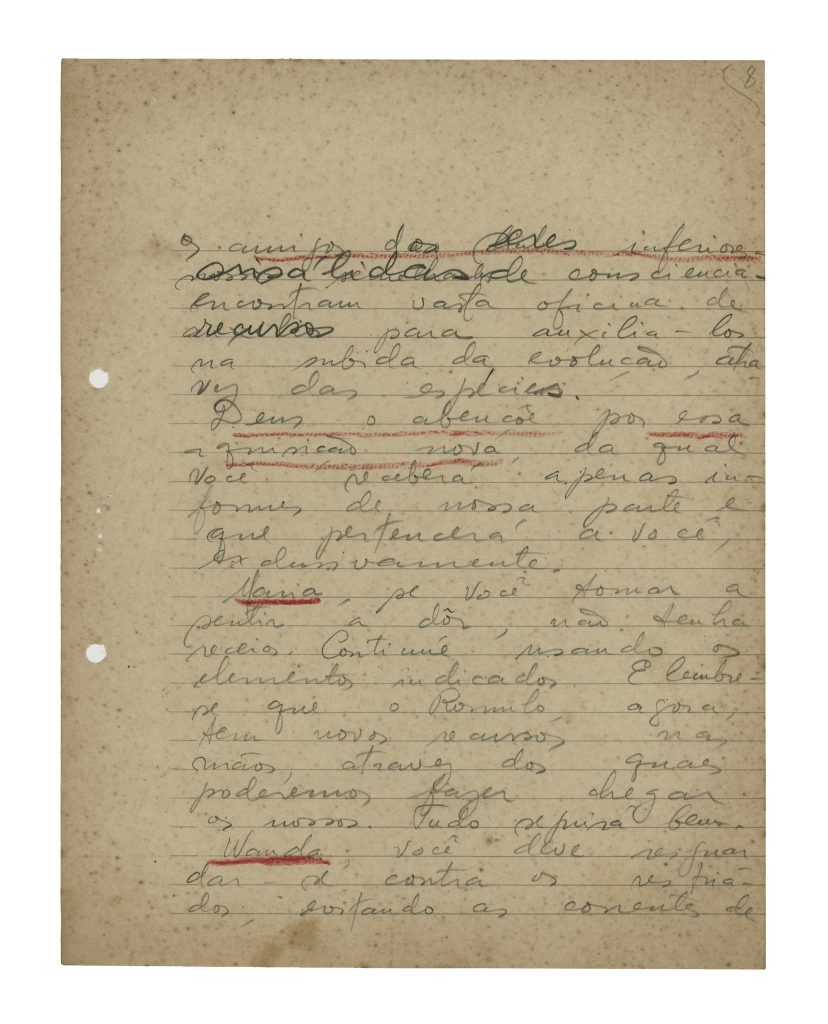 8
os amigos dos seres inferiores
de consciencia
encontram vasta oficina de
recursos para auxilia-los
na subida da evolução, atra
vez das espécies.
Deus o abençõe por essa
aquisicão nova, da qual
você receberá apenas in-
formes de nossa parte e
que pertencerá a você,
exclusivamente.
Maria, se você tornar a
sentir a dôr, não tenha
receios. Continúe usando os
elementos indicados. E lembre-
se que o Romulo agora,
tem novos recursos nas
mãos, atravez dos quais
poderemos fazer chegar
os nossos. Tudo seguirá bem.
Wanda, você deve resguar
dar-se contra os resfria-
dos, evitando as correntes de